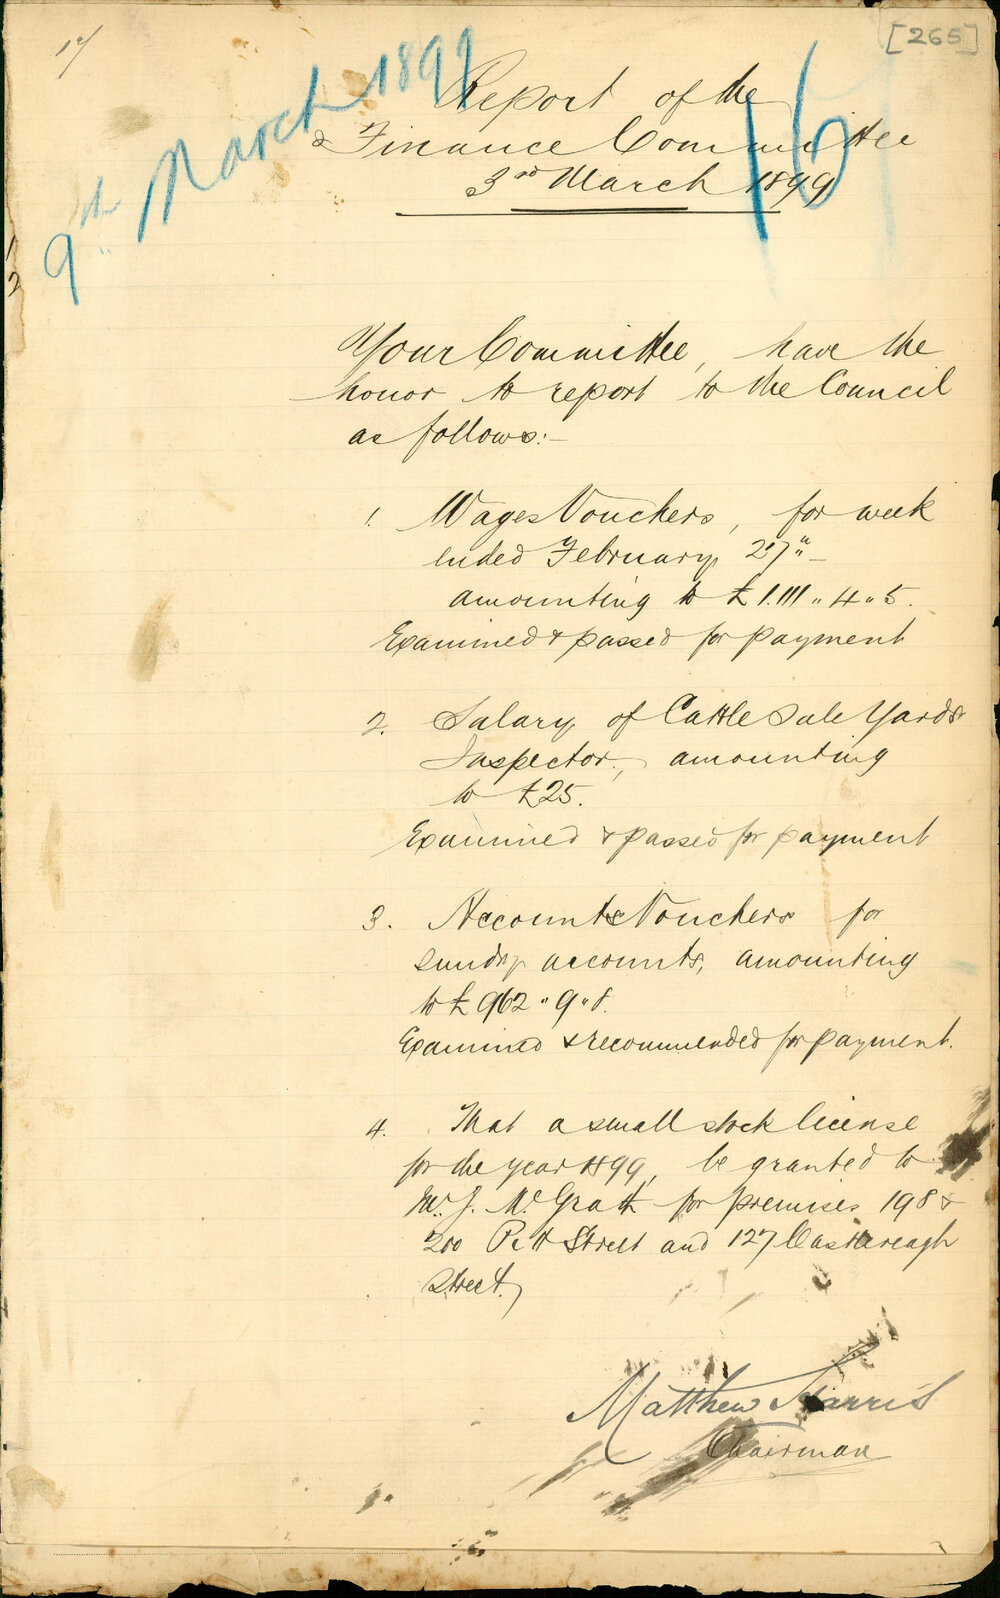 17
[265]
9th March 1899
15
Report of the
Finance Committee
3rd March 1899
Your Committee, have the
honor to report to the Council
as follows:-
1. Wages Vouchers, for week
ended February 27th
amounting to £1.111 " 4 " 5.
Examined & passed for payment
2. Salary of Cattle Sale Yards
Inspector, amounting
to £25.
Examined & passed for payment
3. Accounts Vouchers for
sundry accounts, amounting
to £962 " 9 " 8.
Examined & recommended for payment.
4. That a small stock license
for the year 1899, be granted to
Mr. J. McGrath for premises 198 &
200 Pitt Street and 127 Castlereagh
Street.
Matthew Harris
Chairman